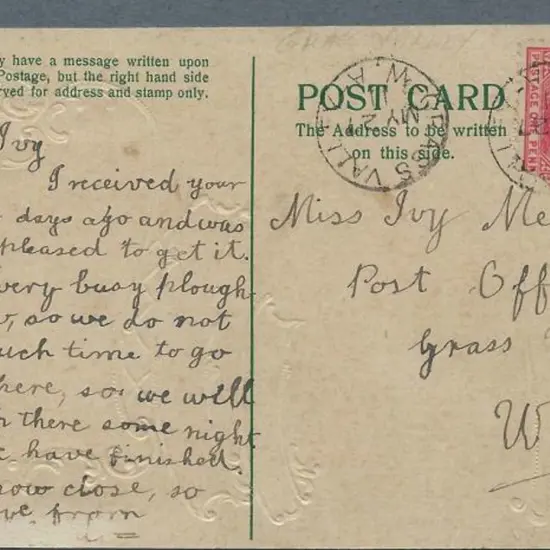 y have a message written upon
Postage, but the right hand side
rved for address and stamp only.
Ivy
I received your
days ago and was
pleased to get it.
very busy plough-
so we do not
uch time to go
here, so we will
there some night
have finished.
now close, so
from
POST CARD
The Address to be written
on this side.
GRASS VALLEY
MY 27
W.A
Miss Ivy Me
Post Off
Grass
W
POSTAGE ONE PENNY